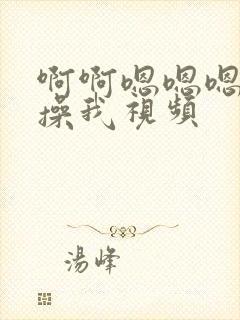 啊啊嗯嗯嗯
操我視頻
湯峰